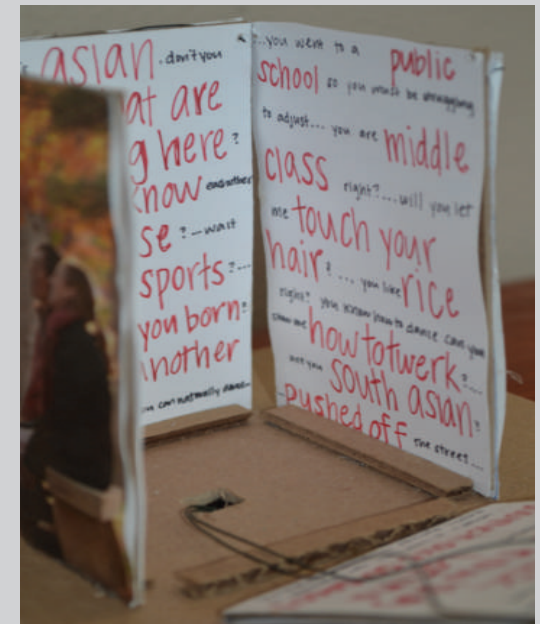 asian. don't you
at are
g here?
know each other
se? - wait
sports?...
you born?
nother
can naturally dance...
...you went to a public
school so you must be struggling
to adjust... you are middle
class right?... will you let
me touch your
hair?... you like rice
right? you know how to dance can you
show me how to twerk?...
are you south asian?
-pushed off the street...